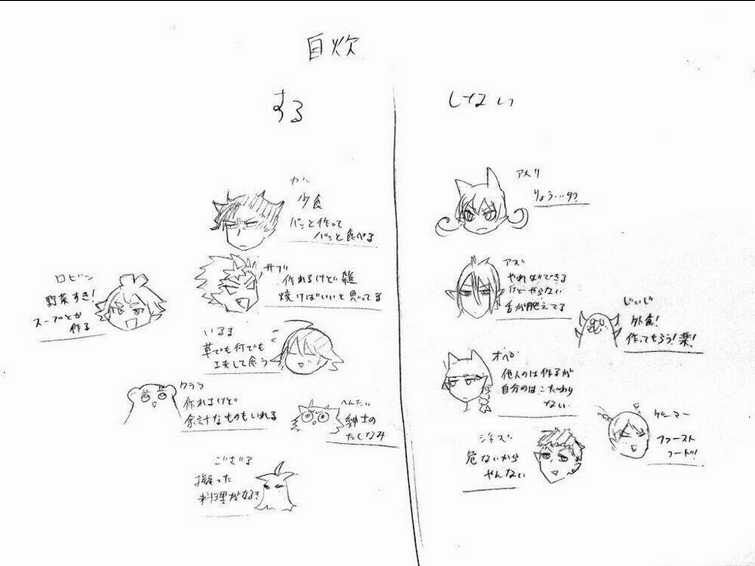 自炊
する
しない
カル
少食
パッと作って
パッと食べる
サブ
作れるけど雑
焼けばいいと思ってる
ロビン
野菜すき!
スープとか
作る
いるま
草でも何でも
工夫して食う
クララ
作れるけど
余計なものもいれる
へんたい
紳士の
たしなみ
ごぞる
凝った
料理がなぁ
アメリ
りょう…り?
アズ
やればできる
けどやらない
舌が肥えてる
じいじ
外食!
作ってもらう!楽!
オペラ
他人のは作るが
自分のはこだわり
ない
ジャズ
危ないから
やんない
ゲーマー
ファースト
フード!